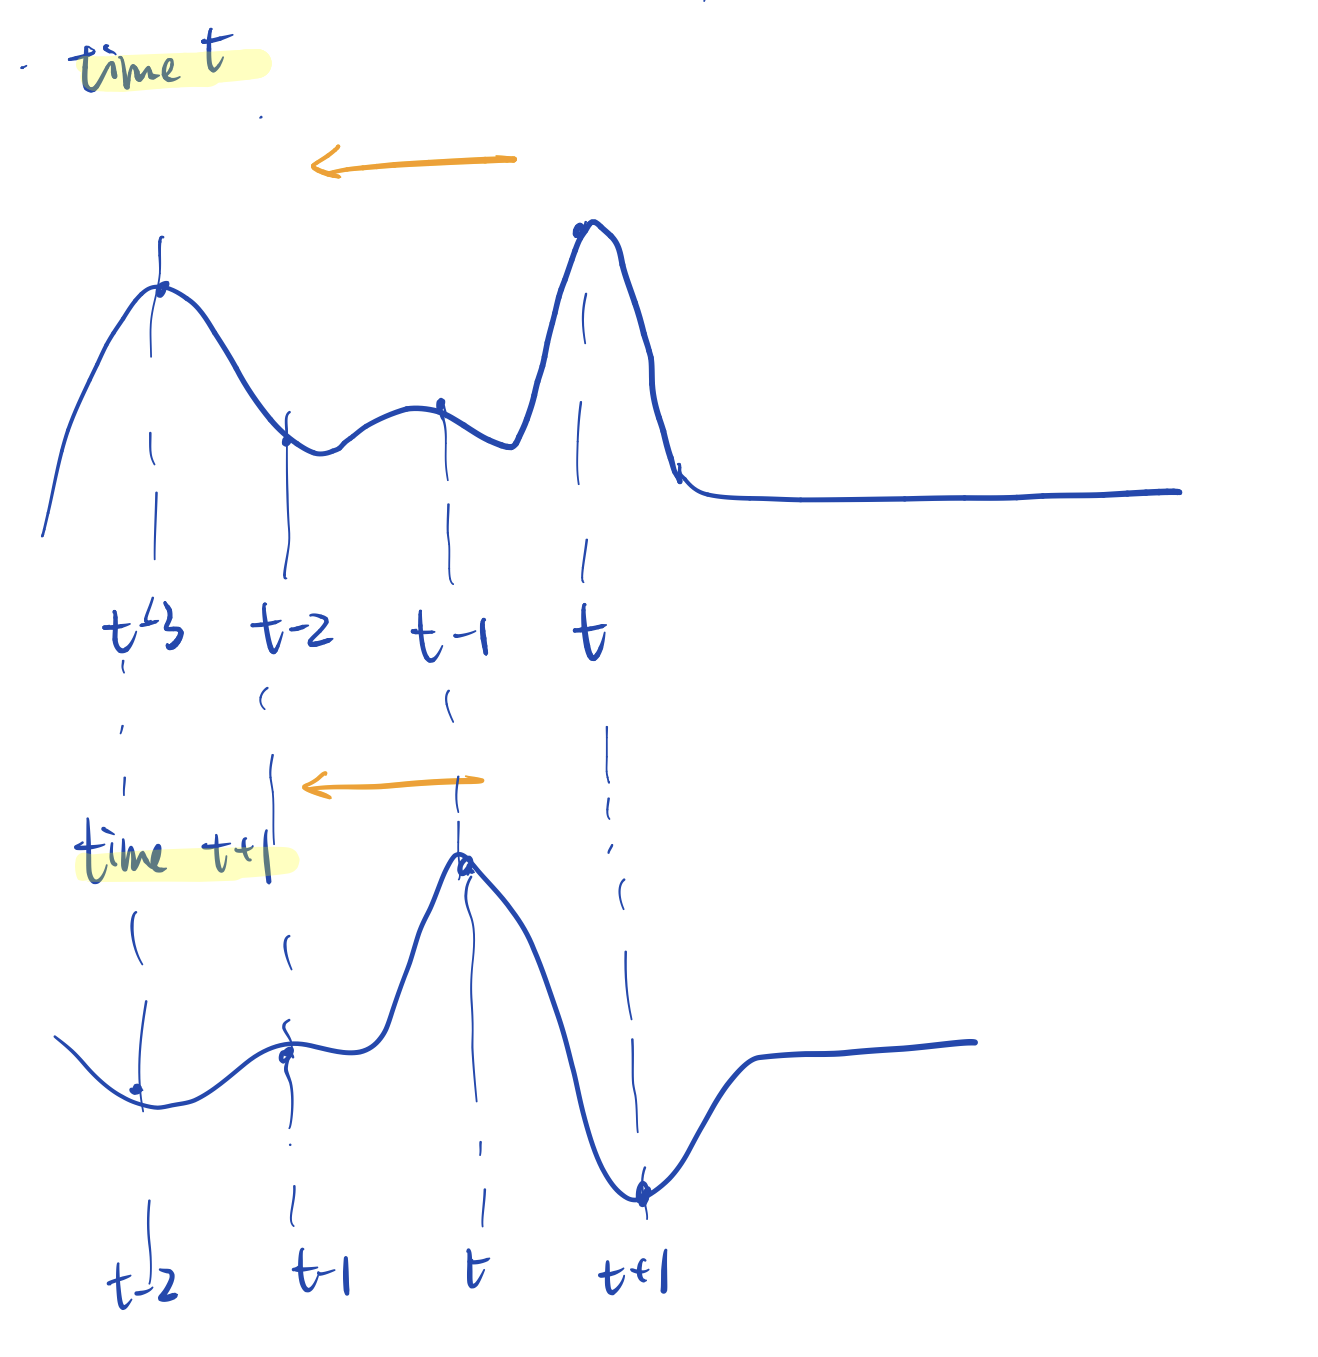 time t
t-3 t-2 t-1 t
time t+1
t-2 t-1 t t+1